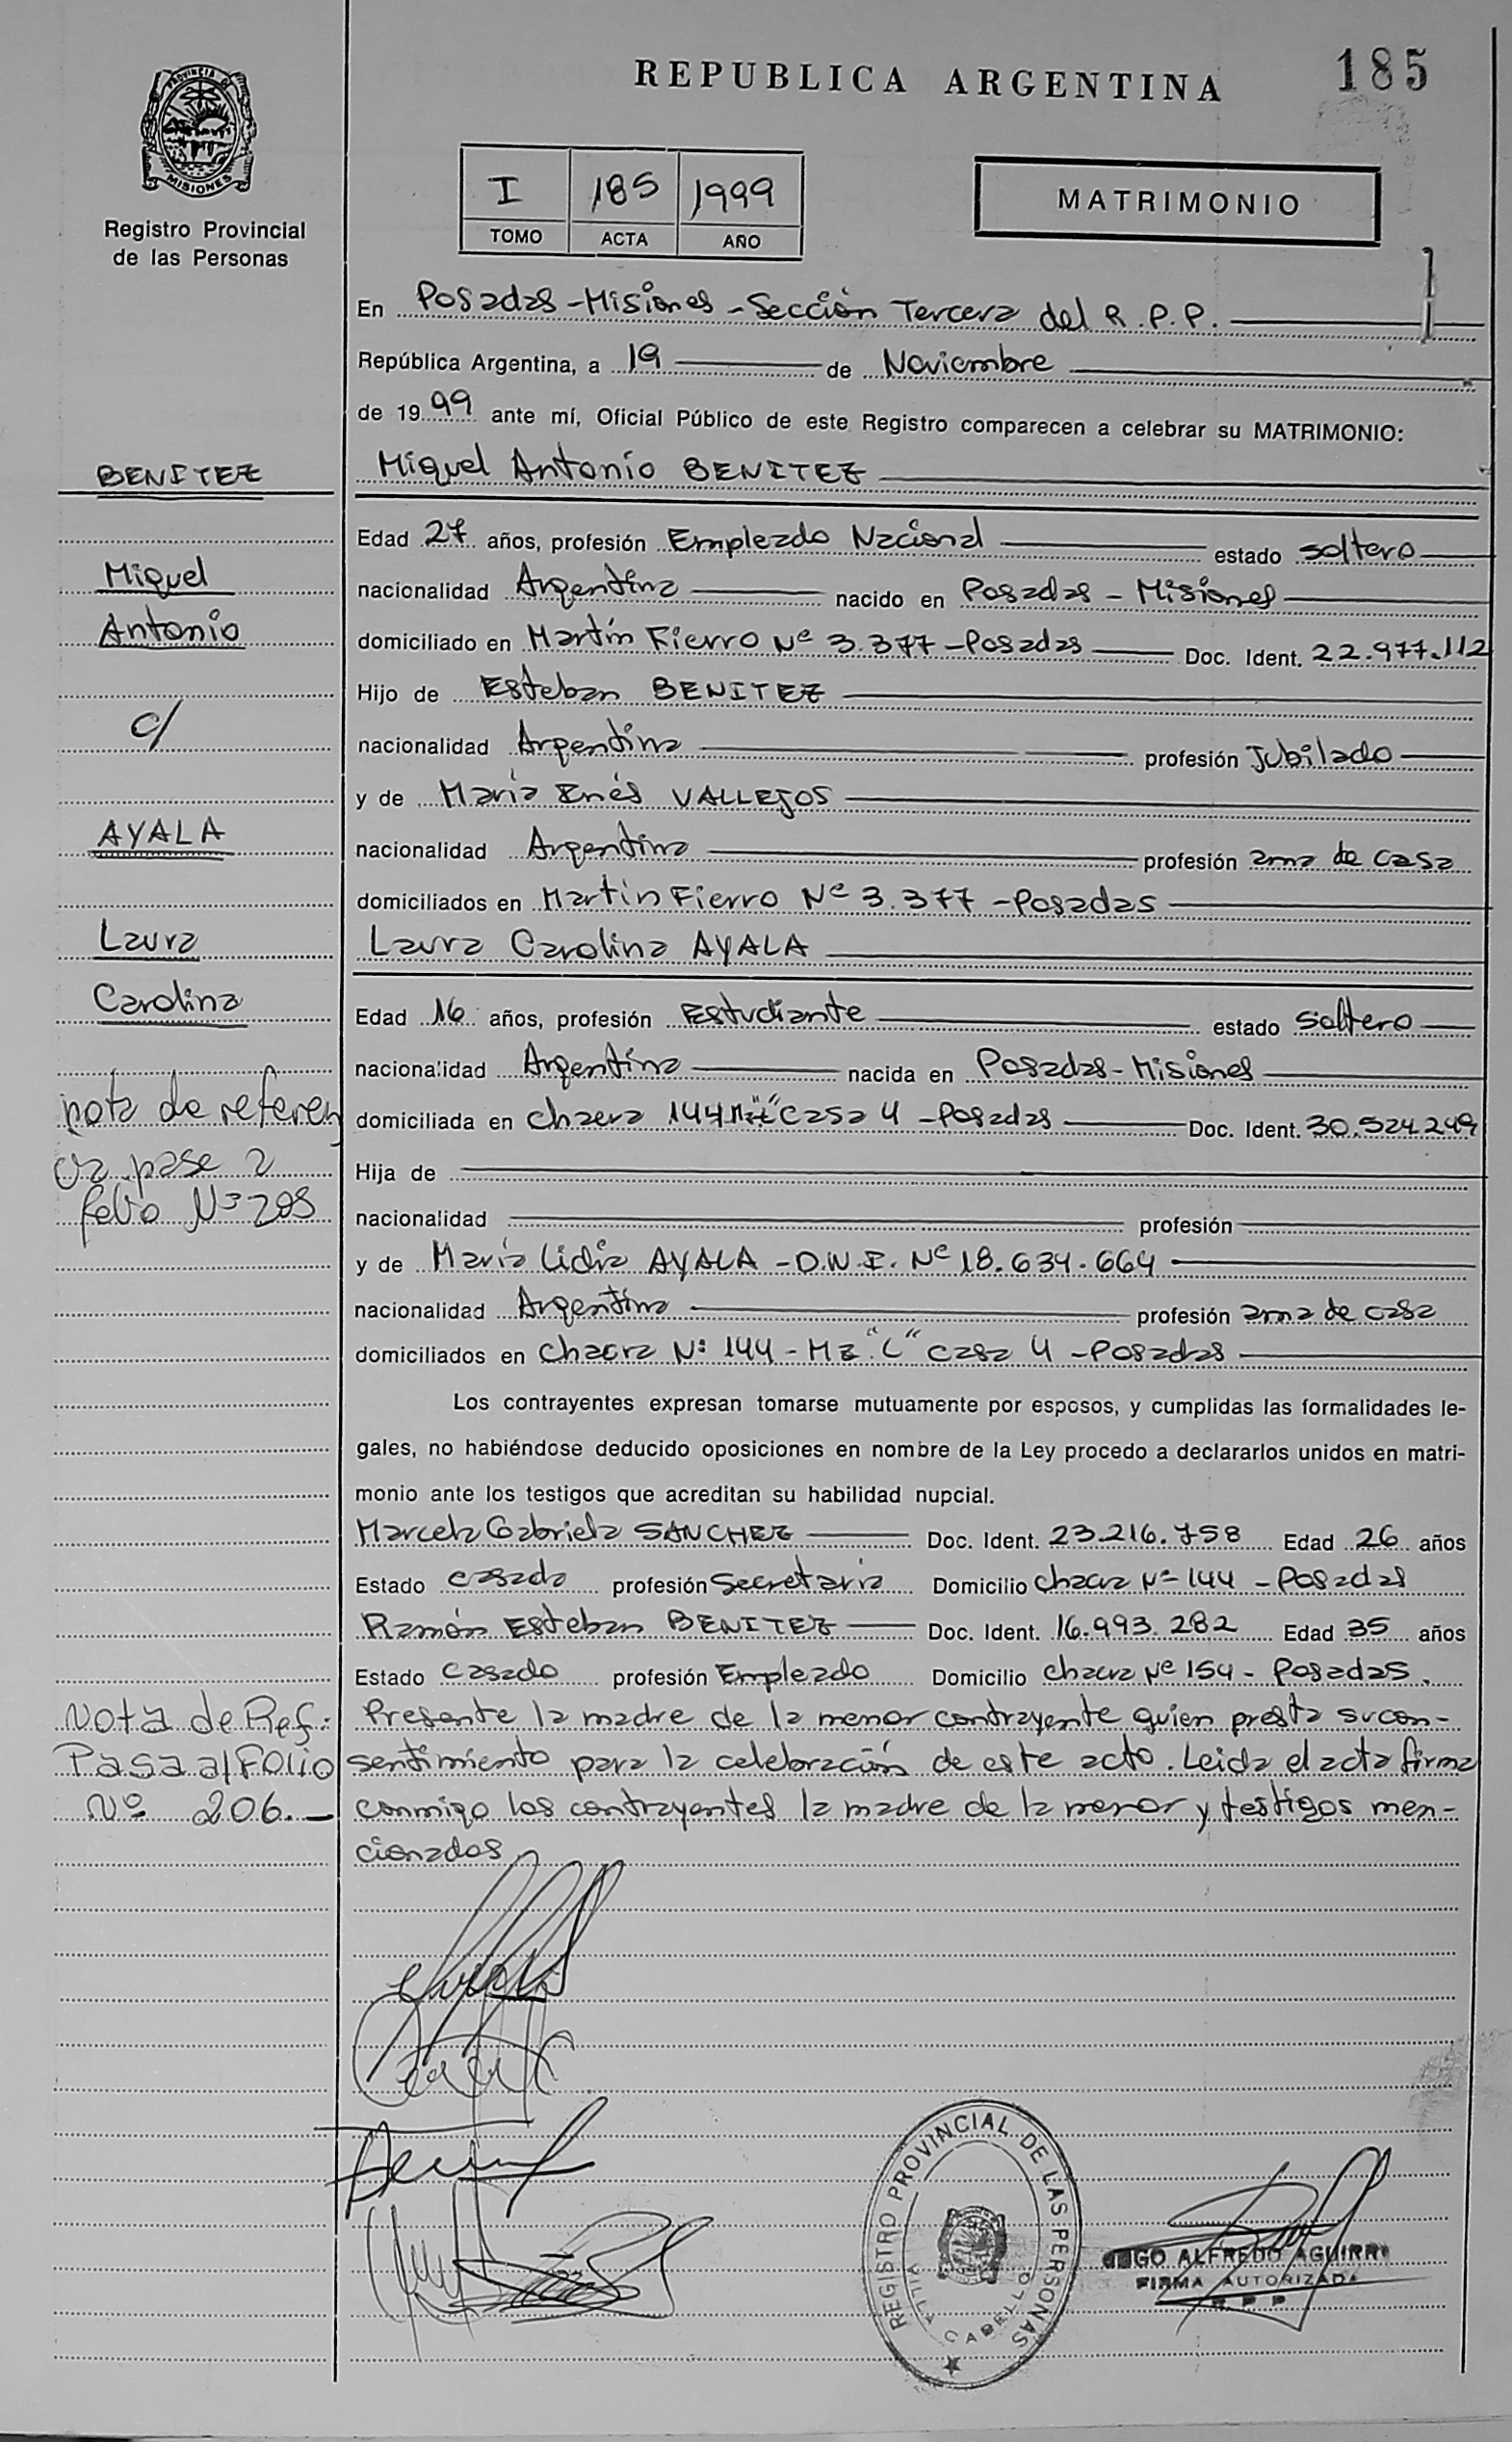 REPUBLICA ARGENTINA
185
PROVINCIA DE
MISIONES
Registro Provincial
de las Personas
I 185 1999
TOMO ACTA AÑO
MATRIMONIO
En Posadas - Misiones - Sección Tercera del R.P.P.
República Argentina, a 19 de Noviembre
de 1999 ante mí, Oficial Público de este Registro comparecen a celebrar su MATRIMONIO:
BENITEZ
Miguel
Antonio
c/
AYALA
Laura
Carolina
nota de referen
cia pase a
folio Nº 205
Nota de Ref:
Pasa al Folio
Nº 206.-
Miguel Antonio BENITEZ
Edad 27 años, profesión Empleado Nacional estado soltero
nacionalidad Argentina nacido en Posadas - Misiones
domiciliado en Martín Fierro Nº 3.377 - Posadas Doc. Ident. 22.977.112
Hijo de Esteban BENITEZ
nacionalidad Argentina profesión Jubilado
y de María Inés VALLEJOS
nacionalidad Argentina profesión ama de casa
domiciliados en Martín Fierro Nº 3.377 - Posadas
Laura Carolina AYALA
Edad 16 años, profesión Estudiante estado soltero
nacionalidad Argentina nacida en Posadas - Misiones
domiciliada en Chacra 144 Casa 4 - Posadas Doc. Ident. 30.524.249
Hija de
nacionalidad profesión
y de María Lidia AYALA - D.N.I. Nº 18.634.664
nacionalidad Argentina profesión ama de casa
domiciliados en Chacra Nº 144 - Mz "C" casa 4 - Posadas
Los contrayentes expresan tomarse mutuamente por esposos, y cumplidas las formalidades le-
gales, no habiéndose deducido oposiciones en nombre de la Ley procedo a declararlos unidos en matri-
monio ante los testigos que acreditan su habilidad nupcial.
Marcela Gabriela SANCHEZ Doc. Ident. 23.216.758 Edad 26 años
Estado casada profesión Secretaria Domicilio chacra Nº 144 - Posadas
Ramón Esteban BENITEZ Doc. Ident. 16.993.282 Edad 35 años
Estado Casado profesión Empleado Domicilio chacra Nº 154 - Posadas.
Presente la madre de la menor contrayente quien presta su con-
sentimiento para la celebración de este acto. Leida el acta firma
conmigo los contrayentes la madre de la menor y testigos men-
cionados
REGISTRO PROVINCIAL DE LAS PERSONAS
VILLA CABELLO
HUGO ALFREDO AGUIRRE
FIRMA AUTORIZADA
R P P